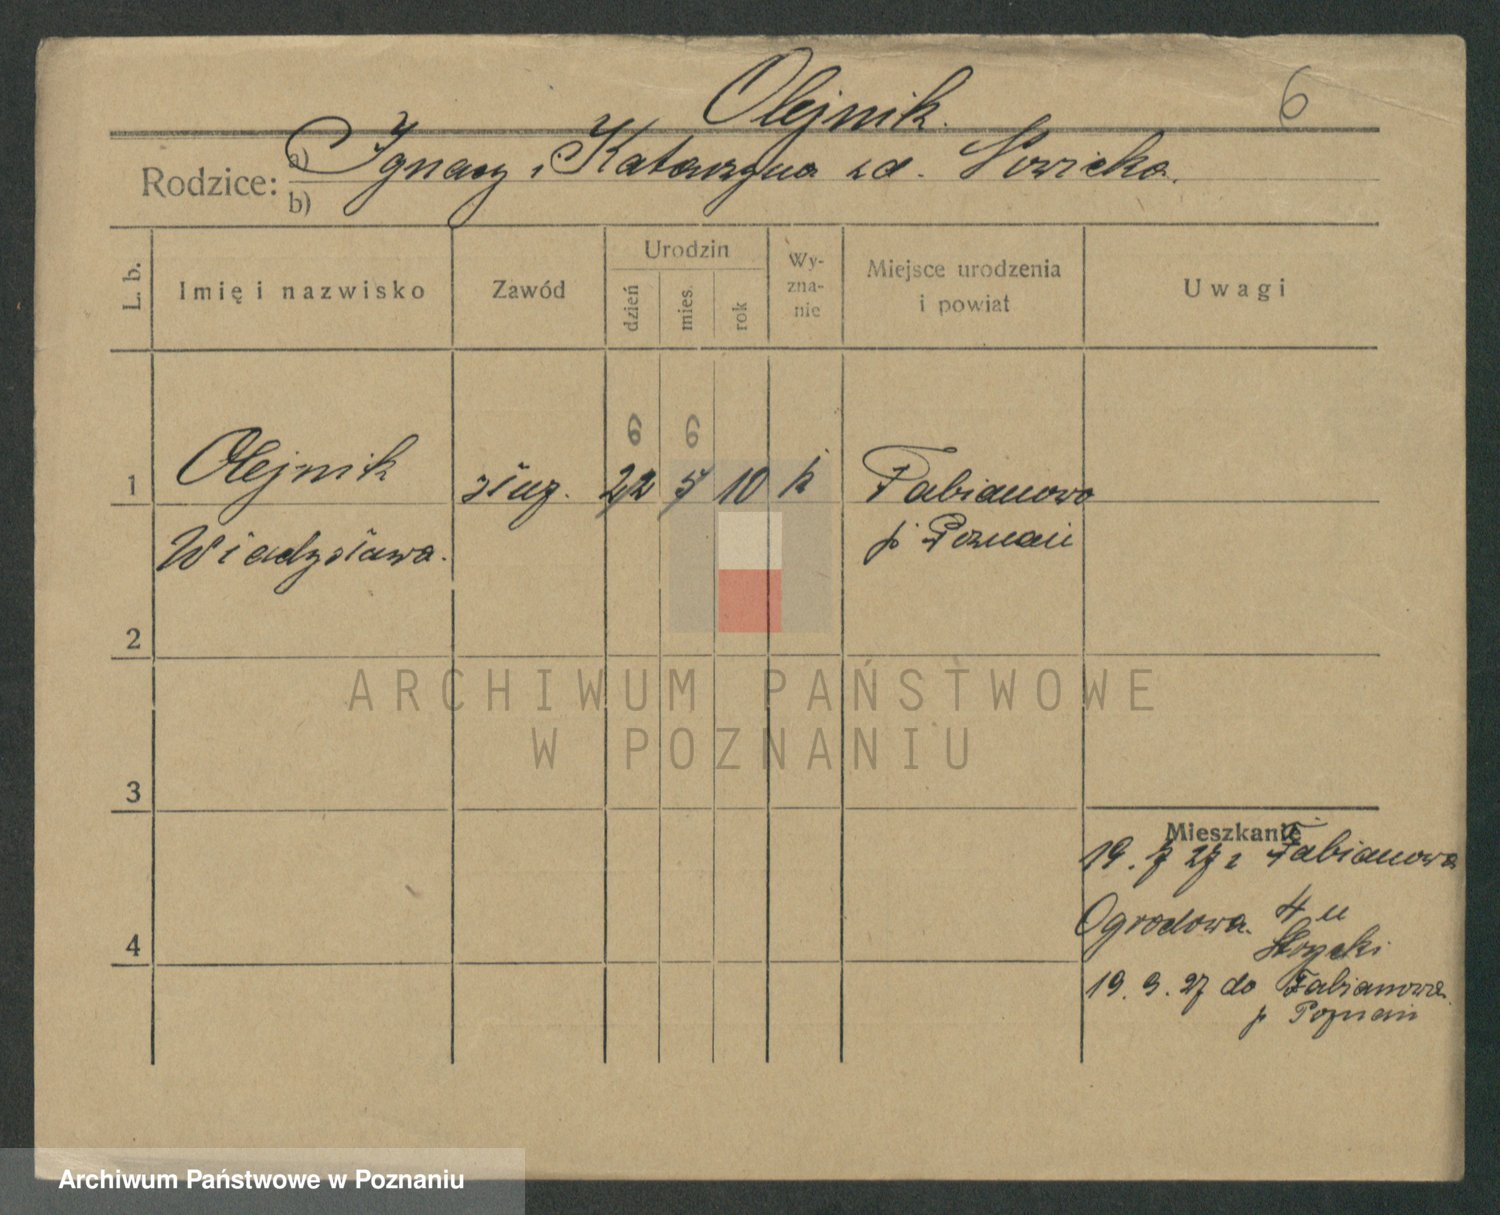 Olejnik.
6
Rodzice:
a) Ignacy i Katarzyna z d. Nowicka.
b)
L. b.
Imię i nazwisko
Zawód
Urodzin
dzień
mies.
rok
Wy-
zna-
nie
Miejsce urodzenia
i powiat
Uwagi
6 6
1 Olejnik służ. 22 5 10 k Fabianowo
Władysława. p. Poznań
2
3
4
Mieszkanie
19. 7 27 z Fabianowa
Ogrodowa 4 u
19. 9. 27 do Fabianowa
p Poznań
ARCHIWUM PAŃSTWOWE
W POZNANIU
Archiwum Państwowe w Poznaniu